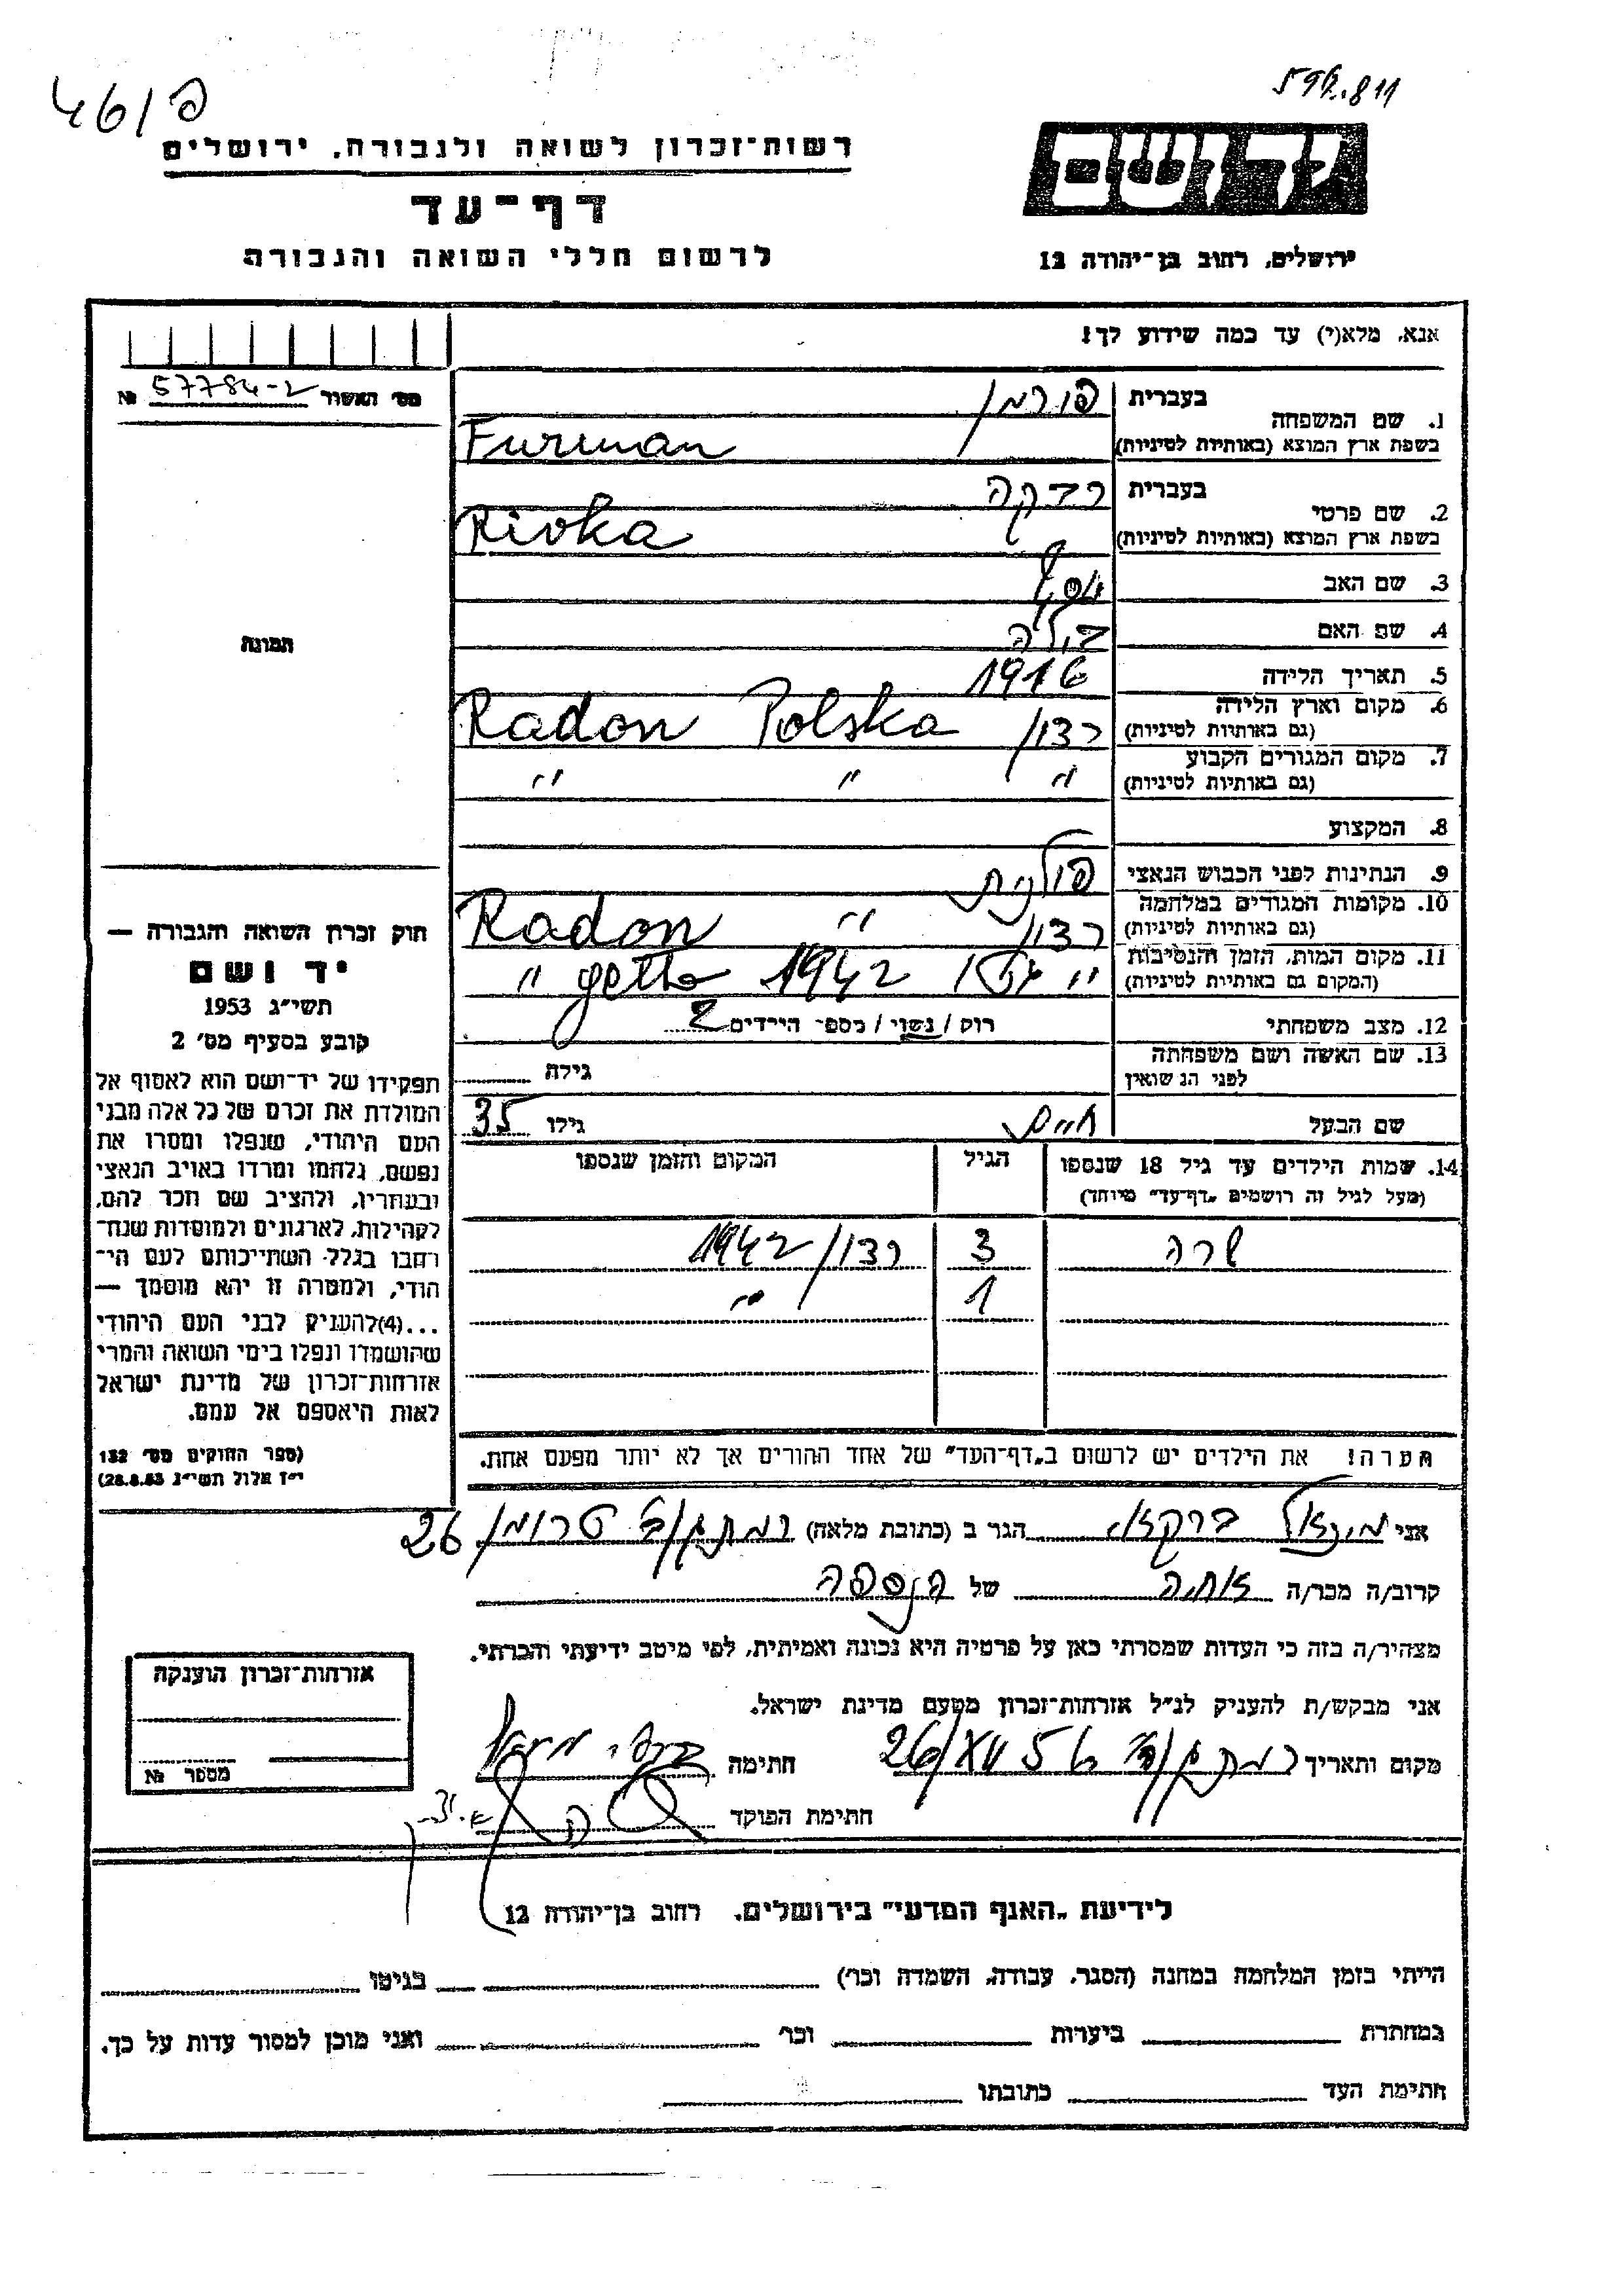 46/פ
רשות-זכרון לשואה ולגבורה, ירושלים
דף-עד
לרשום חללי השואה והגבורה
יד ושם
ירושלים, רחוב בן-יהודה 12
אנא, מלא(י) עד כמה שידוע לך!
מס׳ האשור № 57784-2
תמונה
1. שם המשפחה בעברית פורמן
בשפת ארץ המוצא (באותיות לטיניות) Furman
2. שם פרטי בעברית רבקה
בשפת ארץ המוצא (באותיות לטיניות) Rivka
3. שם האב יוסף
4. שם האם
5. תאריך הלידה 1916
6. מקום וארץ הלידה (גם באותיות לטיניות) רדון Radon Polska
7. מקום המגורים הקבוע (גם באותיות לטיניות) " " "
8. המקצוע
9. הנתינות לפני הכבוש הנאצי פולנית
10. מקומות המגורים במלחמה (גם באותיות לטיניות) רדון " Radon
11. מקום המות, הזמן והנסיבות (המקום גם באותיות לטיניות) " גטו 1942 getto "
12. מצב משפחתי רוק / נשוי / מספ׳ הילדים 2
13. שם האשה ושם משפחתה לפני הנשואין גילה
שם הבעל חיים גילו 35
14. שמות הילדים עד גיל 18 שנספו (מעל לגיל זה רושמים „דף-עד" מיוחד) הגיל המקום והזמן שנספו
שרה 3 רדון 1942
1 "
הערה! את הילדים יש לרשום ב„דף-העד" של אחד ההורים אך לא יותר מפעם אחת.
חוק זכרון השואה והגבורה —
יד ושם
תשי״ג 1953
קובע בסעיף מס׳ 2
תפקידו של יד-ושם הוא לאסוף אל
המולדת את זכרם של כל אלה מבני
העם היהודי, שנפלו ומסרו את
נפשם, נלחמו ומרדו באויב הנאצי
ובעוזריו, ולהציב שם וזכר להם,
לקהילות, לארגונים ולמוסדות שנח־
רבו בגלל השתייכותם לעם הי־
הודי, ולמטרה זו יהא מוסמך —
...(4)להעניק לבני העם היהודי
שהושמדו ונפלו בימי השואה והמרי
אזרחות-זכרון של מדינת ישראל
לאות היאספם אל עמם.
(ספר החוקים מס׳ 132
י״ז אלול תשי״ג 28.8.53)
אני מיכאל הגר ב (כתובת מלאה) רמת גן טרומן 26
קרוב/ה מכר/ה אחיה של הנספה
מצהיר/ה בזה כי העדות שמסרתי כאן על פרטיה היא נכונה ואמיתית, לפי מיטב ידיעתי והכרתי.
אני מבקש/ת להעניק לנ״ל אזרחות-זכרון מטעם מדינת ישראל.
מקום ותאריך רמת גן חתימה
חתימת הפוקד
אזרחות-זכרון הוענקה
מספר №
לידיעת „האגף המדעי" בירושלים, רחוב בן-יהודה 12
הייתי בזמן המלחמה במחנה (הסגר, עבודה, השמדה וכו׳) בגיטו
במחתרת ביערות וכו׳ ואני מוכן למסור עדות על כך.
חתימת העד כתובתו